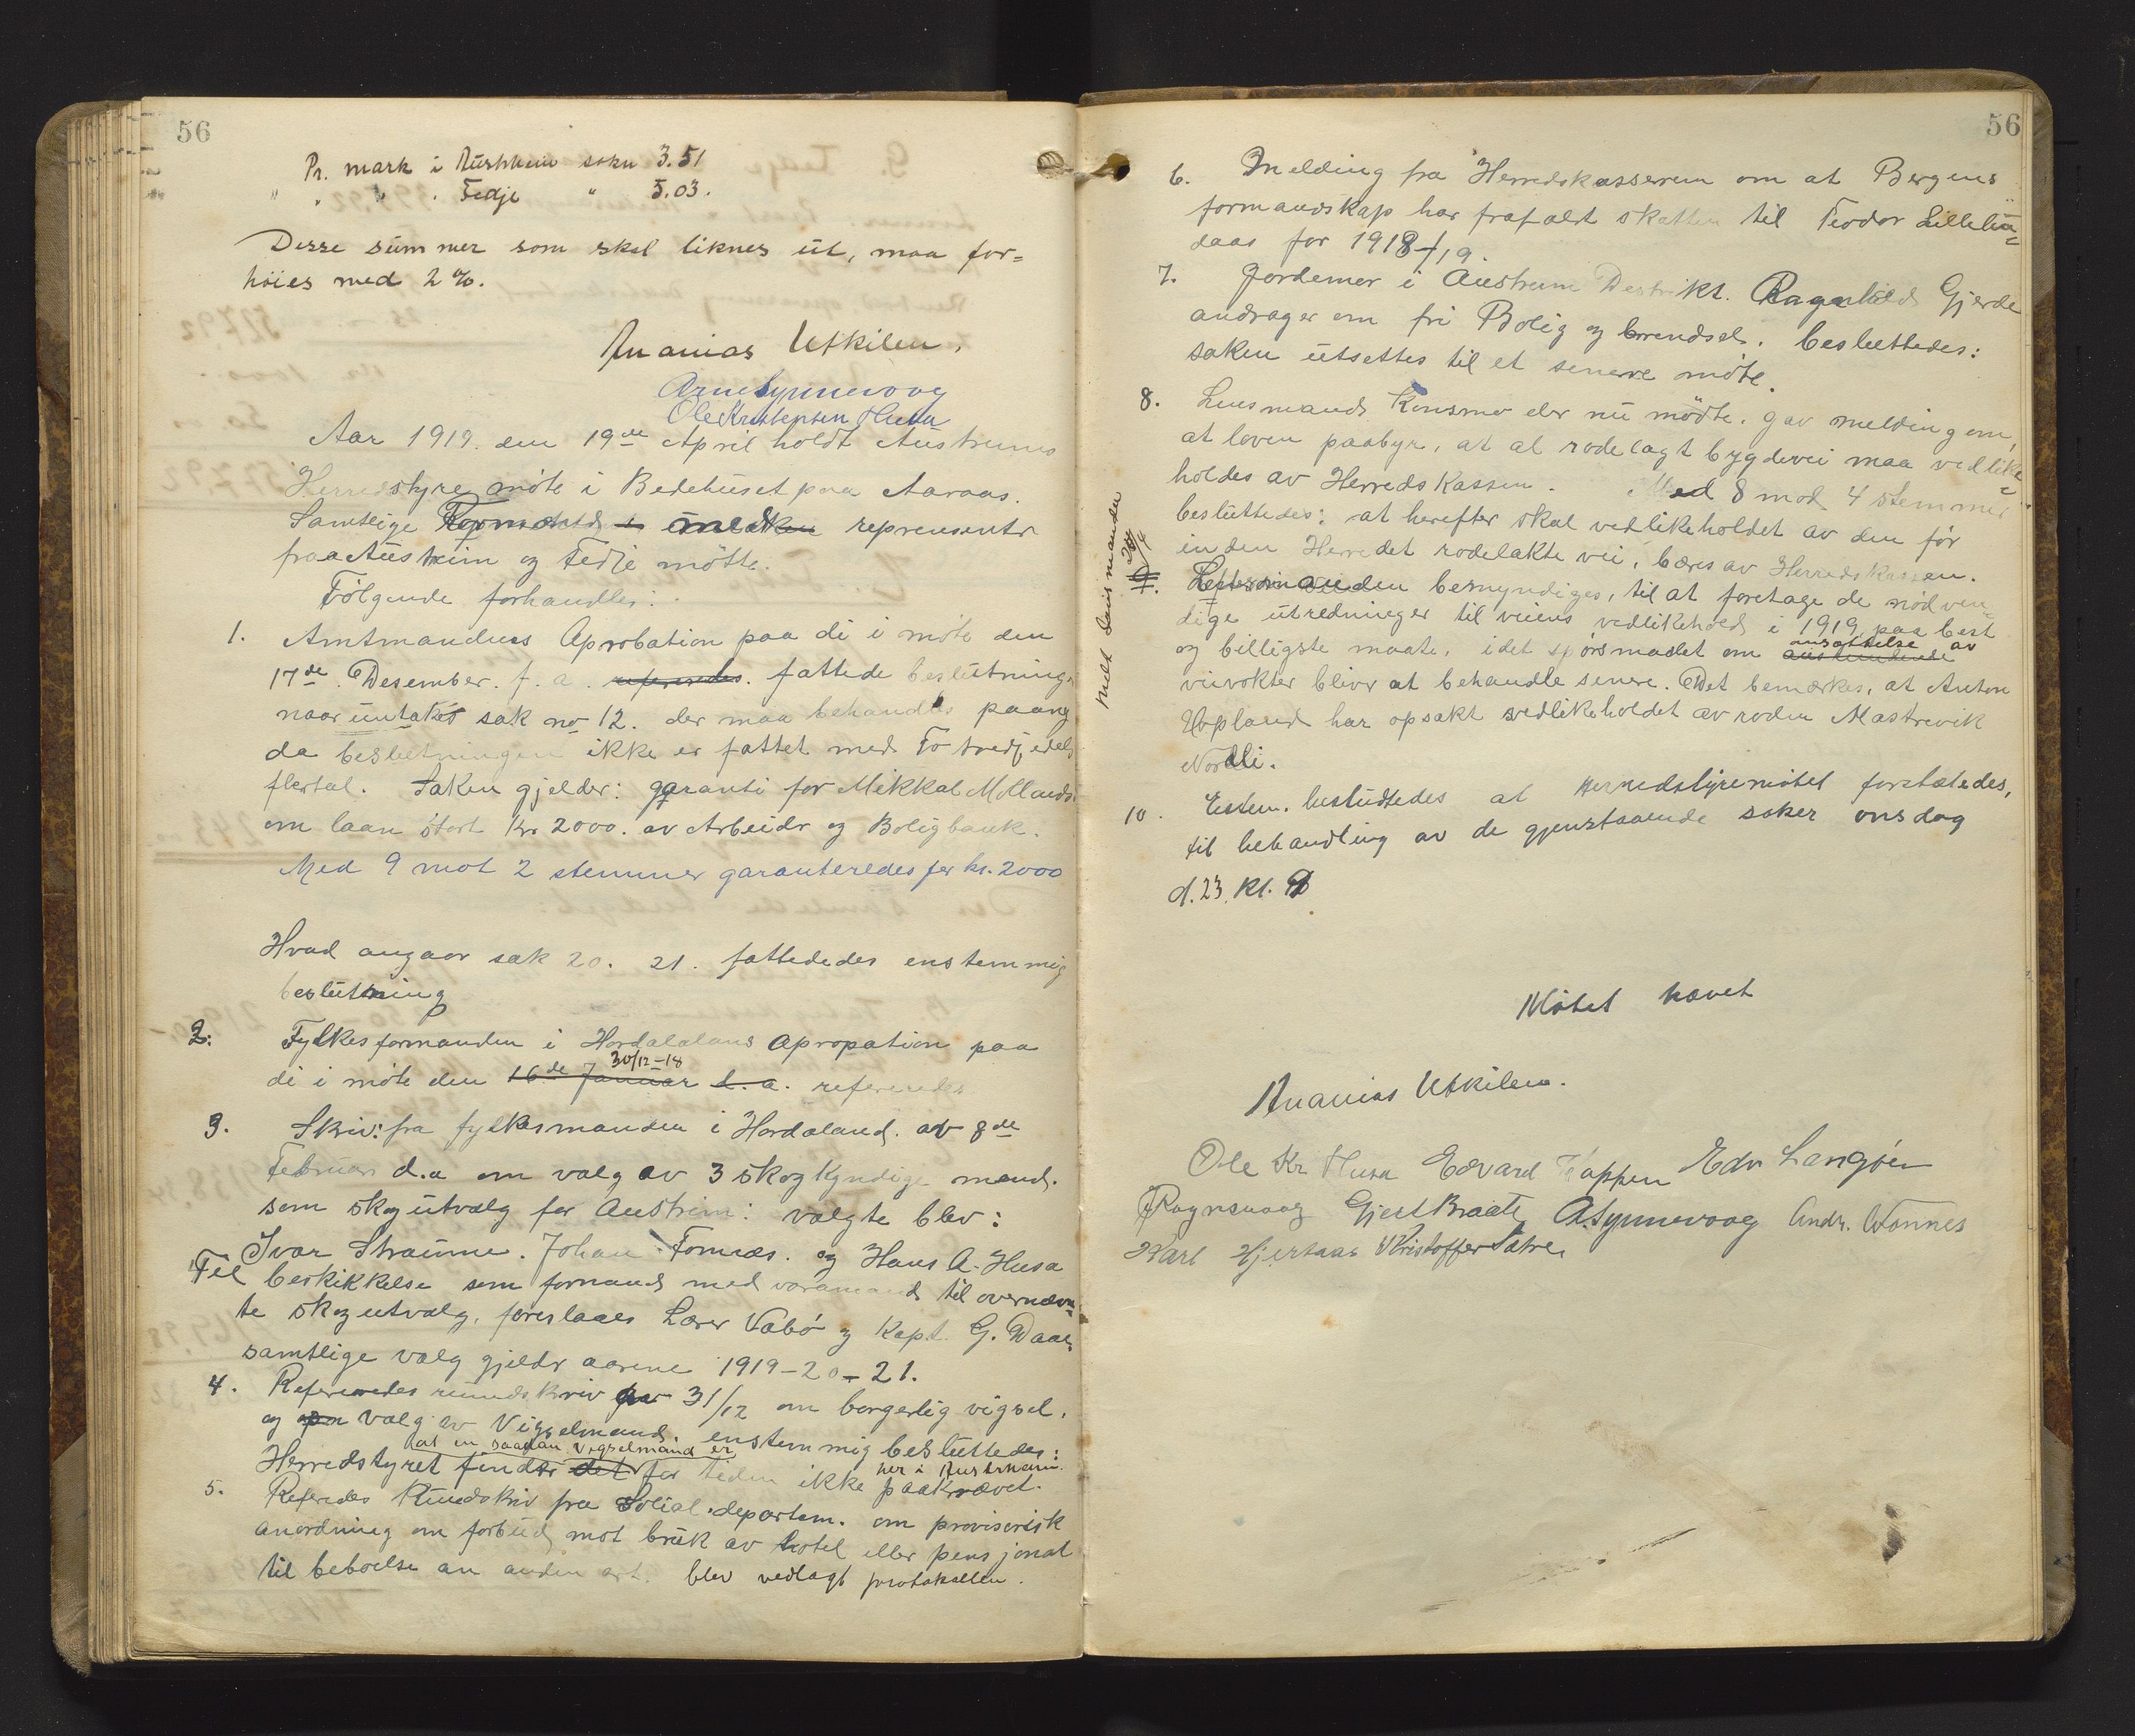 56
Pr. mark i Austrheim sokn 3.51
" " " Fedje " 5.03.
Desse summer som skal liknes ut, maa for=
höies med 2 %.
Ananias Utkilen.
Arne Synnevaag
Ole Kristensen Husa
Aar 1919. den 19de April holdt Austrums
Herredstyre möte i Bedehuset paa Aaraas.
Samtlige reprensentr
fra Austreim og Fedje mötte.
Fölgende forhandles:
1. Amtmandens Aprobation paa di i möte den
17de Desember. f. a. referedes. fattede beslutninge
naar untakes sak no 12. der maa behandles paany
da beslutningen ikke er fattet med To tredjedels
flertal. Saken gjelder: garanti for Mikkal Mollands
om laan stort Kr 2000. av Arbeidr og Boligbank.
Med 9 mot 2 stemmer garanteredes for kr. 2000
Hvad angaar sak 20. 21. fattededes enstemmig
beslutning
2. Fylkesformanden i Hordalalans Apropation paa
30/12-18
di i möte den 16de Januar d. a. referedes
3. Skriv: fra fylkesmanden i Hordaland. av 8de
Februar d.a om valg av 3 skogkyndige mænd.
som skogutvalg for Austrim: valgte blev:
Ivar Straume. Johan Fonnes. og Hans A. Husa
Til beskikkelse som formand med varamand til overnævn=
te skogutvalg, foreslaaes Lærer Vabö og Kapt. G. Daae
samtlige valg gjeldr aarene 1919-20-21.
4. Refereredes rundskriv av 31/12 om borgerlig vigsel.
og om valg av Vigselmand. enstemmig besluttedes:
at en saadan vigselmand er
Herredstyret finder det for tiden ikke paakrævet.
her i Austrheim.
5. Referedes Rundskriv fra Social.departem. om provisorisk
anordning om forbud mot bruk av hotel eller pensjonat
til beboelse an anden art. blev vedlagt protokollen.
56
6. Melding fra Herredskasseren om at Bergens
formandskap har frafaldt skatten til Teodor Lillelin=
daas for 1918-19.
7. Jordemor i Austreim Destrikt. Ragnhild Gjerde
andrager om fri Bolig og brendsel. besluttedes:
saken utsettes til et senere möte.
8. Lensmand Konsmo der nu mödte. gav melding om,
at loven paabyr, at al rodelagt bygdevei maa vedlike=
holdes av Herreds Kassen. Med 8 mod 4 stemmer
besluttedes: at herefter skal vedlikeholdet av den för
inden Herredet rodelakte vei, bæres av Herredskassen.
9. Lensmanden bemyndiges, til at foretage de nödven=
dige utredninger til veiens vedlikehold i 1919 paa best
og billigste maate, idet spörsmaalet om
ansættelse av
veivokter blivr at behandle senere. Det bemærkes, at Anton
Hopland har opsakt vedlikeholdet av roden Mastrevik
Nordli.
10. Enstem. besludtedes at Herredstyremötet forsættedes,
til behandling av de gjenstaaende saker onsdag
d. 23. Kl. 9
Melt Lensmanden
Mötet hævet
Ananias Utkilen.
Ole Kr Husa Edvard Toppen Edv Langöen
Rognsvaag Gjest Kraate A. Synnevaag Andr. Fonnes
Karl Hjertaas Kristoffer Sætre